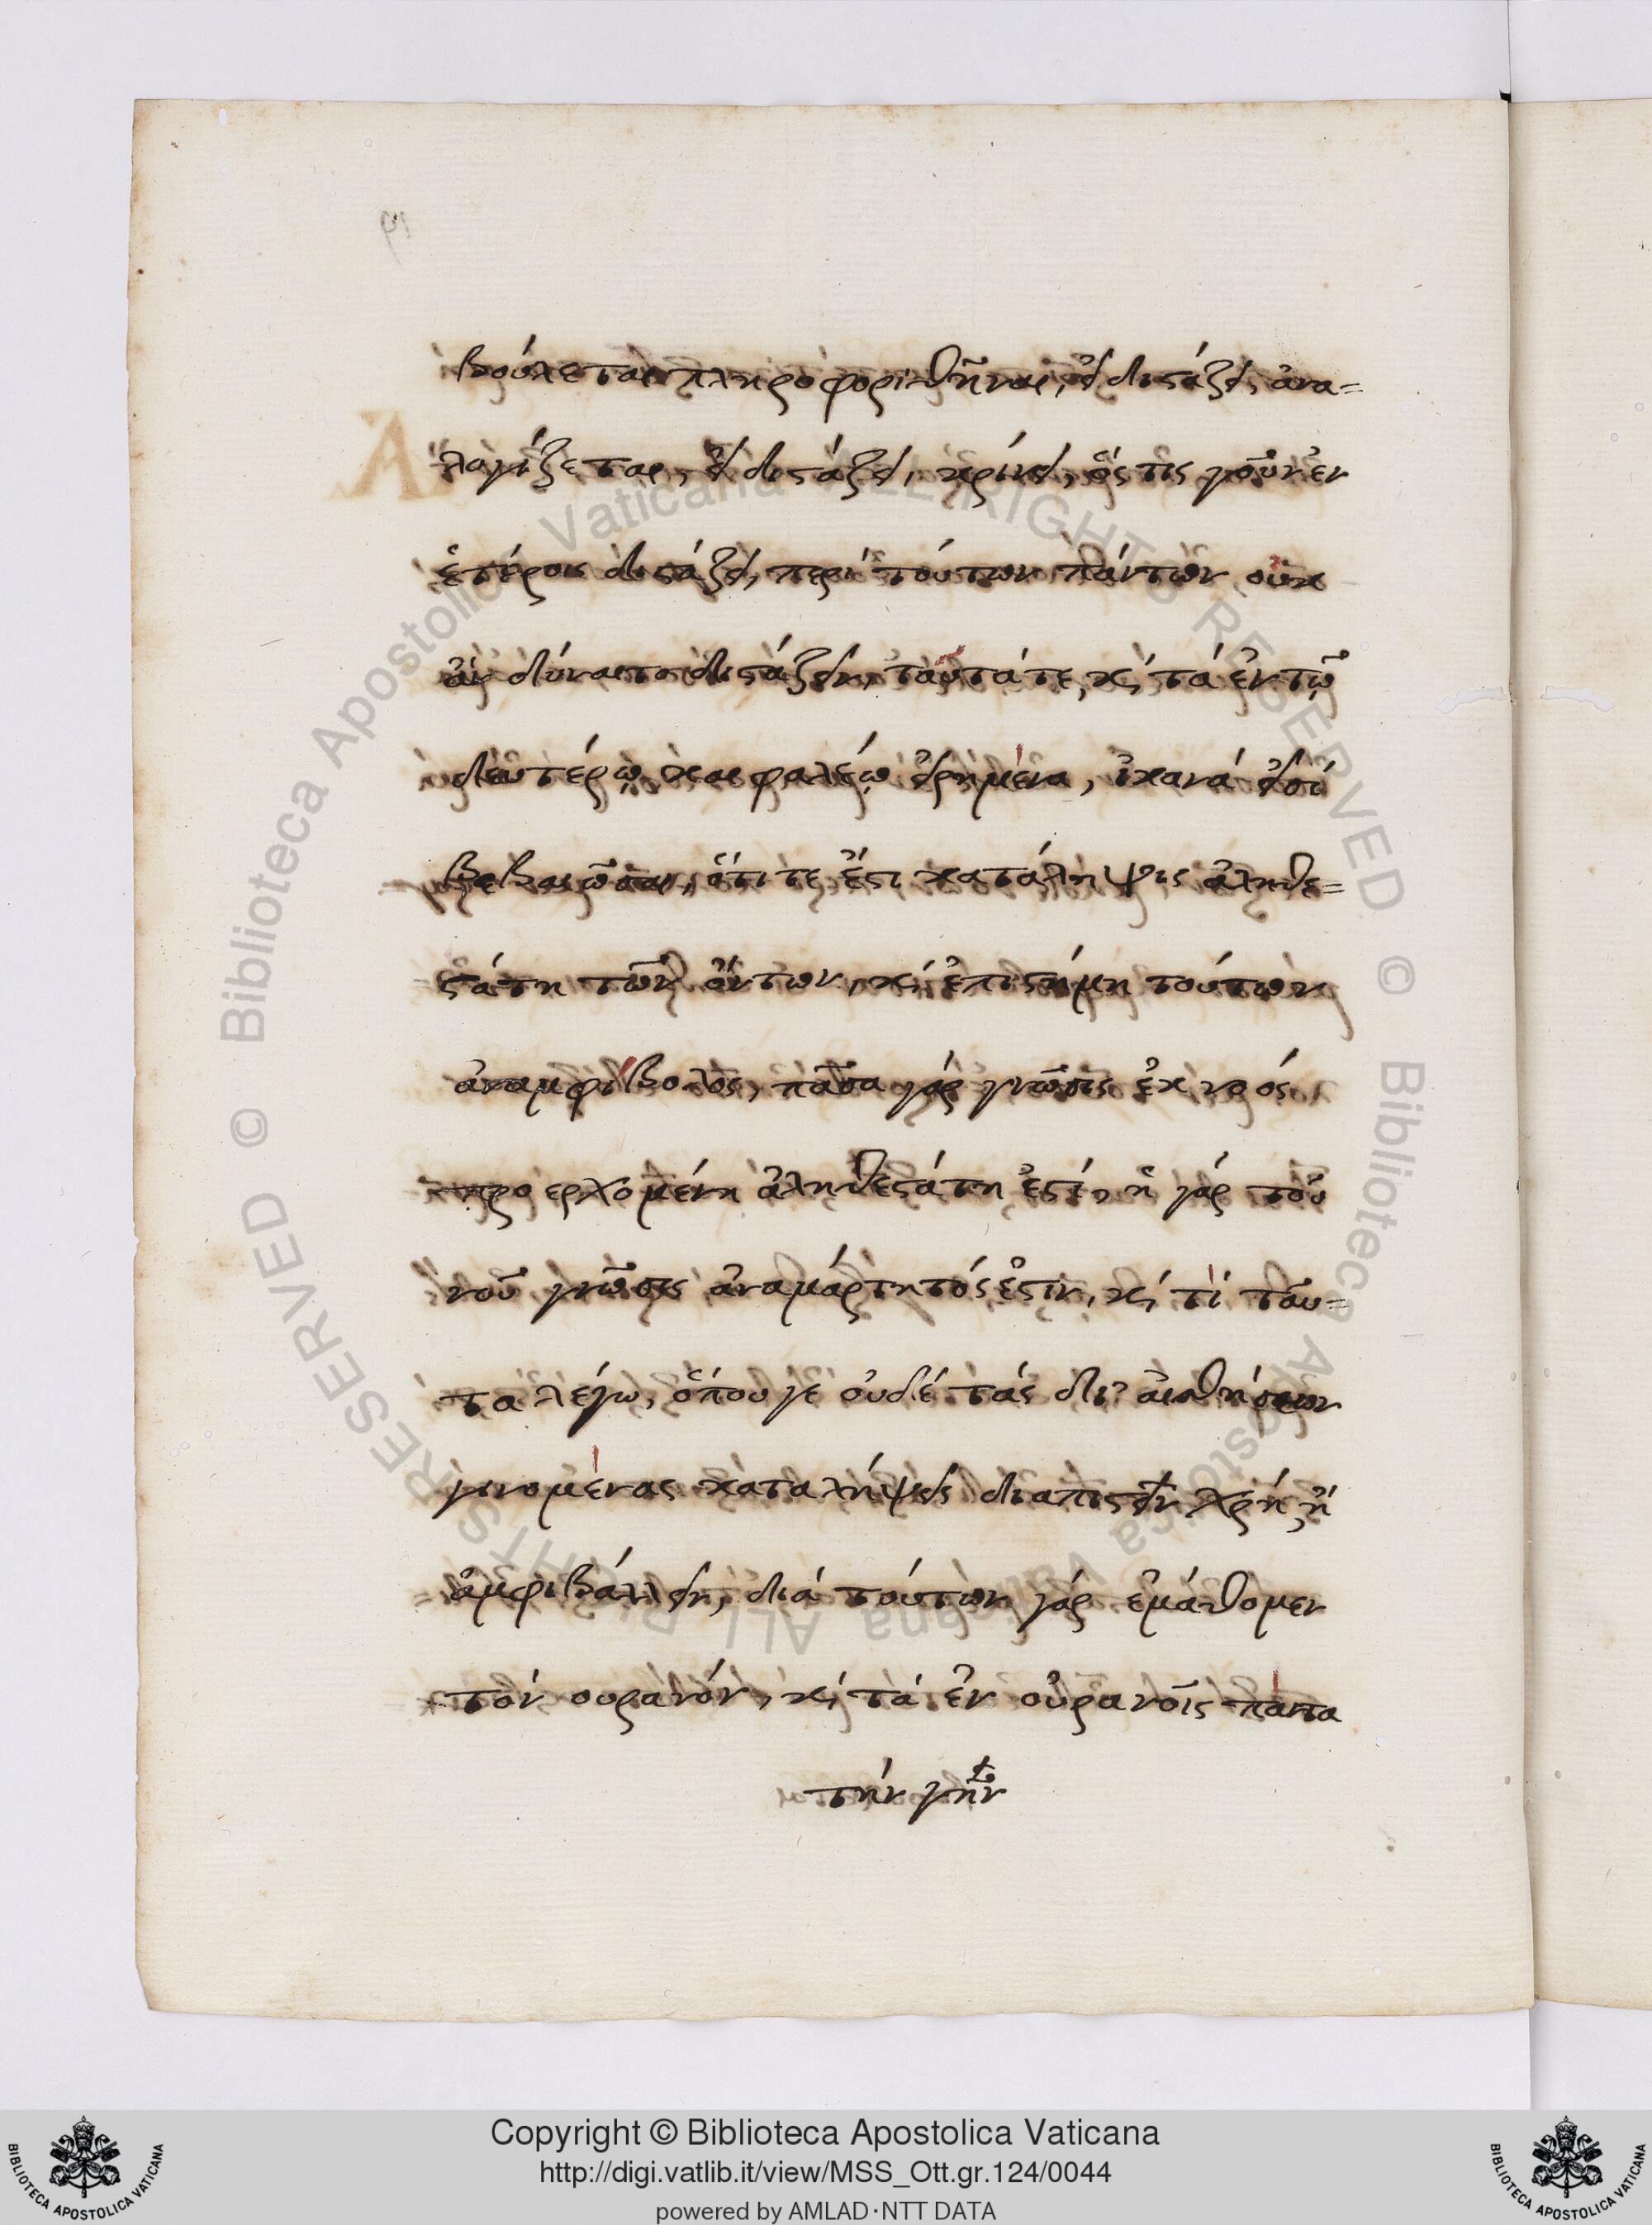 βούλεται πληροφορηθῆναι, εἰ διστάζει, ἀνα=
λογίζεται, εἰ διστάζει, κρίνει, ὅς τις γοῦν ἐν
ἑτέροις διστάζει, περὶ τούτων πάντων οὐκ
ἂν δύναιτο διστάζειν, ταῦτά τε, καὶ τὰ ἐν τῷ
δευτέρῳ κεφαλαίῳ εἰρημένα, ἱκανά εἰσί
βεβαιῶσαι, ὅτι τε ἔστι κατάληψις ἀληθε=
στάτη τῶν ὄντων, καὶ ἐπιστήμη τούτων
ἀναμφίβολος, πᾶσα γάρ γνῶσις ἐκ νοός
προερχομένη ἀληθεστάτη ἐστί, ἡ γάρ τοῦ
νοῦ γνῶσις ἀναμάρτητός ἐστιν, καὶ τί ταυ=
τα λέγω, ὅπου γε οὐδέ τάς δι' αἰσθήσεων
γινομένας καταλήψεις διαπιστεῖν χρή, ἤ
ἀμφιβάλλειν, διά τούτων γάρ ἐμάθομεν
τόν ουρανόν, καὶ τά ἐν οὐρανοῖς πάντα
τήν γῆν
Copyright © Biblioteca Apostolica Vaticana
http://digi.vatlib.it/view/MSS_Ott.gr.124/0044
powered by AMLAD·NTT DATA